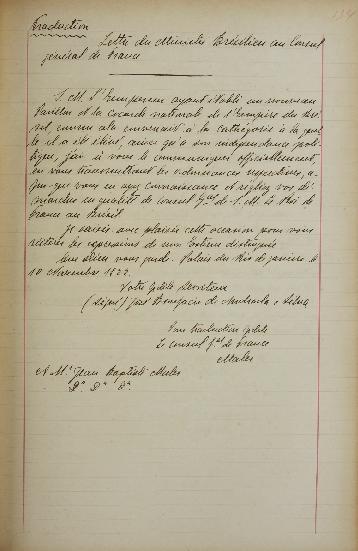 Traduction
Lettre du Ministre Brésilien au Consul
général de France
S. M. l'Empereur ayant établi un nouveau
Pavillon et la cocarde nationale de l'Empire du Bré-
sil, comme cela convenait à la catégorie à la quel-
le il a été élevé, ainsi qu'à son indépendance poli-
tique, j'ai à vous le communiquer officiellement,
en vous transmettant les ordonnances respectives, a-
fin que vous en ayez connaissance et régliez vos dé-
marches en qualité de consul Gal de S. M. le Roi de
France au Brésil.
Je saisis avec plaisir cette occasion pour vous
réitérer les expressions de mon estime distinguée.
Que Dieu vous garde. Palais du Rio de Janeiro le
10 Novembre 1822.
Votre fidèle Serviteur
(signé) José Bonifacio de Andrada e Silva
Pour traduction fidèle
Le consul Gal de France
Maler
A Mr Jean Baptiste Maler